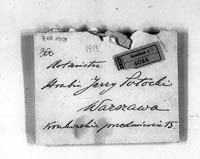 7.02.1919
360
1919
4044
Rotmistrz
Hrabia Jerzy Potocki
Warszawa
Krakowskie przedmieście 15.